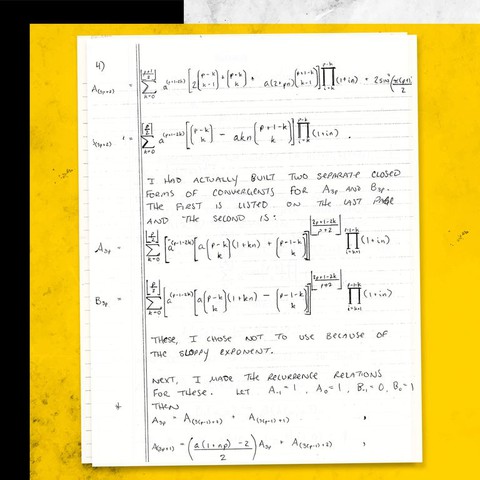 4)
A_(3p+2) = \sum_{k=0}^{⌊(p+1)/2⌋} a^{(p+1-2k)} [ 2 \binom{p-k}{k-1} + \binom{p-k}{k} + a(2+pn) \binom{p+1-k}{k-1} ] \prod_{i=k}^{p-k} (1+in) + 2 sin²(π(p+1)/2)
= \sum_{k=0}^{⌊p/2⌋} a^{(p+1-2k)} [ \binom{p-k}{k} - akn \binom{p+1-k}{k} ] \prod_{i=k}^{p-k} (1+in) .
I HAD ACTUALLY BUILT TWO SEPARATE CLOSED
FORMS OF CONVERGENTS FOR A_{3p} AND B_{3p}.
THE FIRST IS LISTED ON THE LAST PAGE
AND THE SECOND IS:
A_{3p} = \sum_{k=0}^{⌊p/2⌋} [ a^{(p-1-2k)} [ a \binom{p-k}{k} (1+kn) + \binom{p-1-k}{k} ] ]^{⌊(2p+1-2k)/(p+2)⌋} \prod_{i=k+1}^{p-1-k} (1+in)
B_{3p} = \sum_{k=0}^{⌊p/2⌋} [ a^{(p-1-2k)} [ a \binom{p-k}{k} (1+kn) - \binom{p-1-k}{k} ] ]^{⌊(2p+1-2k)/(p+2)⌋} \prod_{i=k+1}^{p-1-k} (1+in)
THESE, I CHOSE NOT TO USE BECAUSE OF
THE SLOPPY EXPONENT.
NEXT, I MADE THE RECURRENCE RELATIONS
FOR THESE. LET A_{-1}=1, A_0=1, B_{-1}=0, B_0=1
* THEN
A_{3p} = A_{(3(p-1)+2)} + A_{(3(p-1)+1)} ,
A_{(3p+1)} = ( (a(1+np) - 2) / 2 ) A_{3p} + A_{(3(p-1)+2)} ,